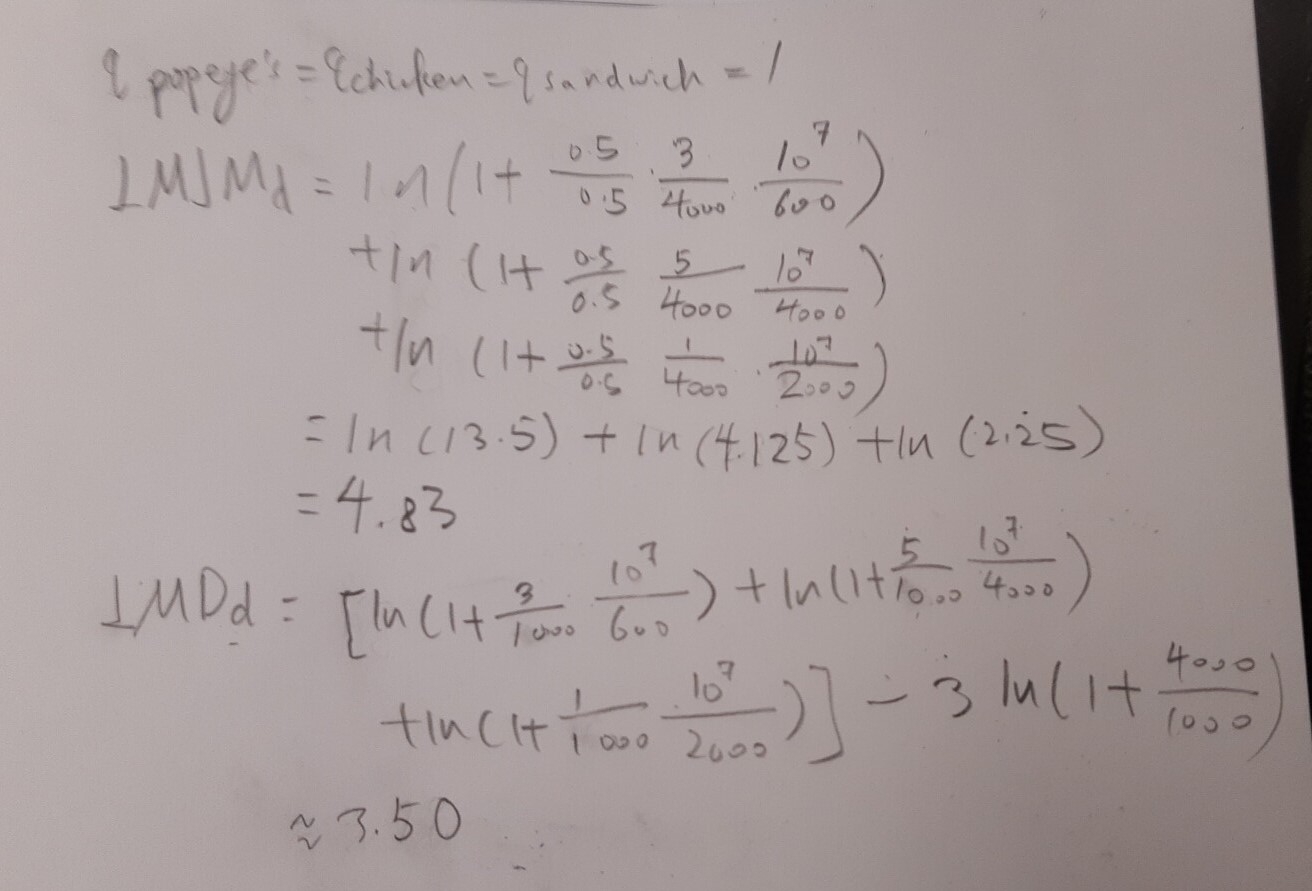 q popeye's = q chicken = q sandwich = 1
LMJMd = ln(1 + 0.5/0.5 · 3/4000 · 10^7/600)
+ ln (1 + 0.5/0.5 5/4000 10^7/4000)
+ ln (1 + 0.5/0.5 1/4000 · 10^7/2000)
= ln (13.5) + ln (4.125) + ln (2.25)
= 4.83
LMDd = [ln(1 + 3/1000 10^7/600) + ln(1 + 5/1000 10^7/4000)
+ ln(1 + 1/1000 10^7/2000)] - 3 ln(1 + 4000/1000)
≈ 3.50